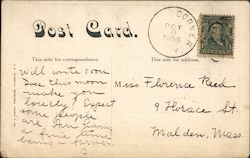 Post Card.
CORNER
OCT
This side for correspondence.
This side for address.
Will write soon.
Does this moon
make you
lonely? Expect
some people
are
a fine time
being a farmer.
Miss Florence Reed
9 Horace St.
Malden, Mass.